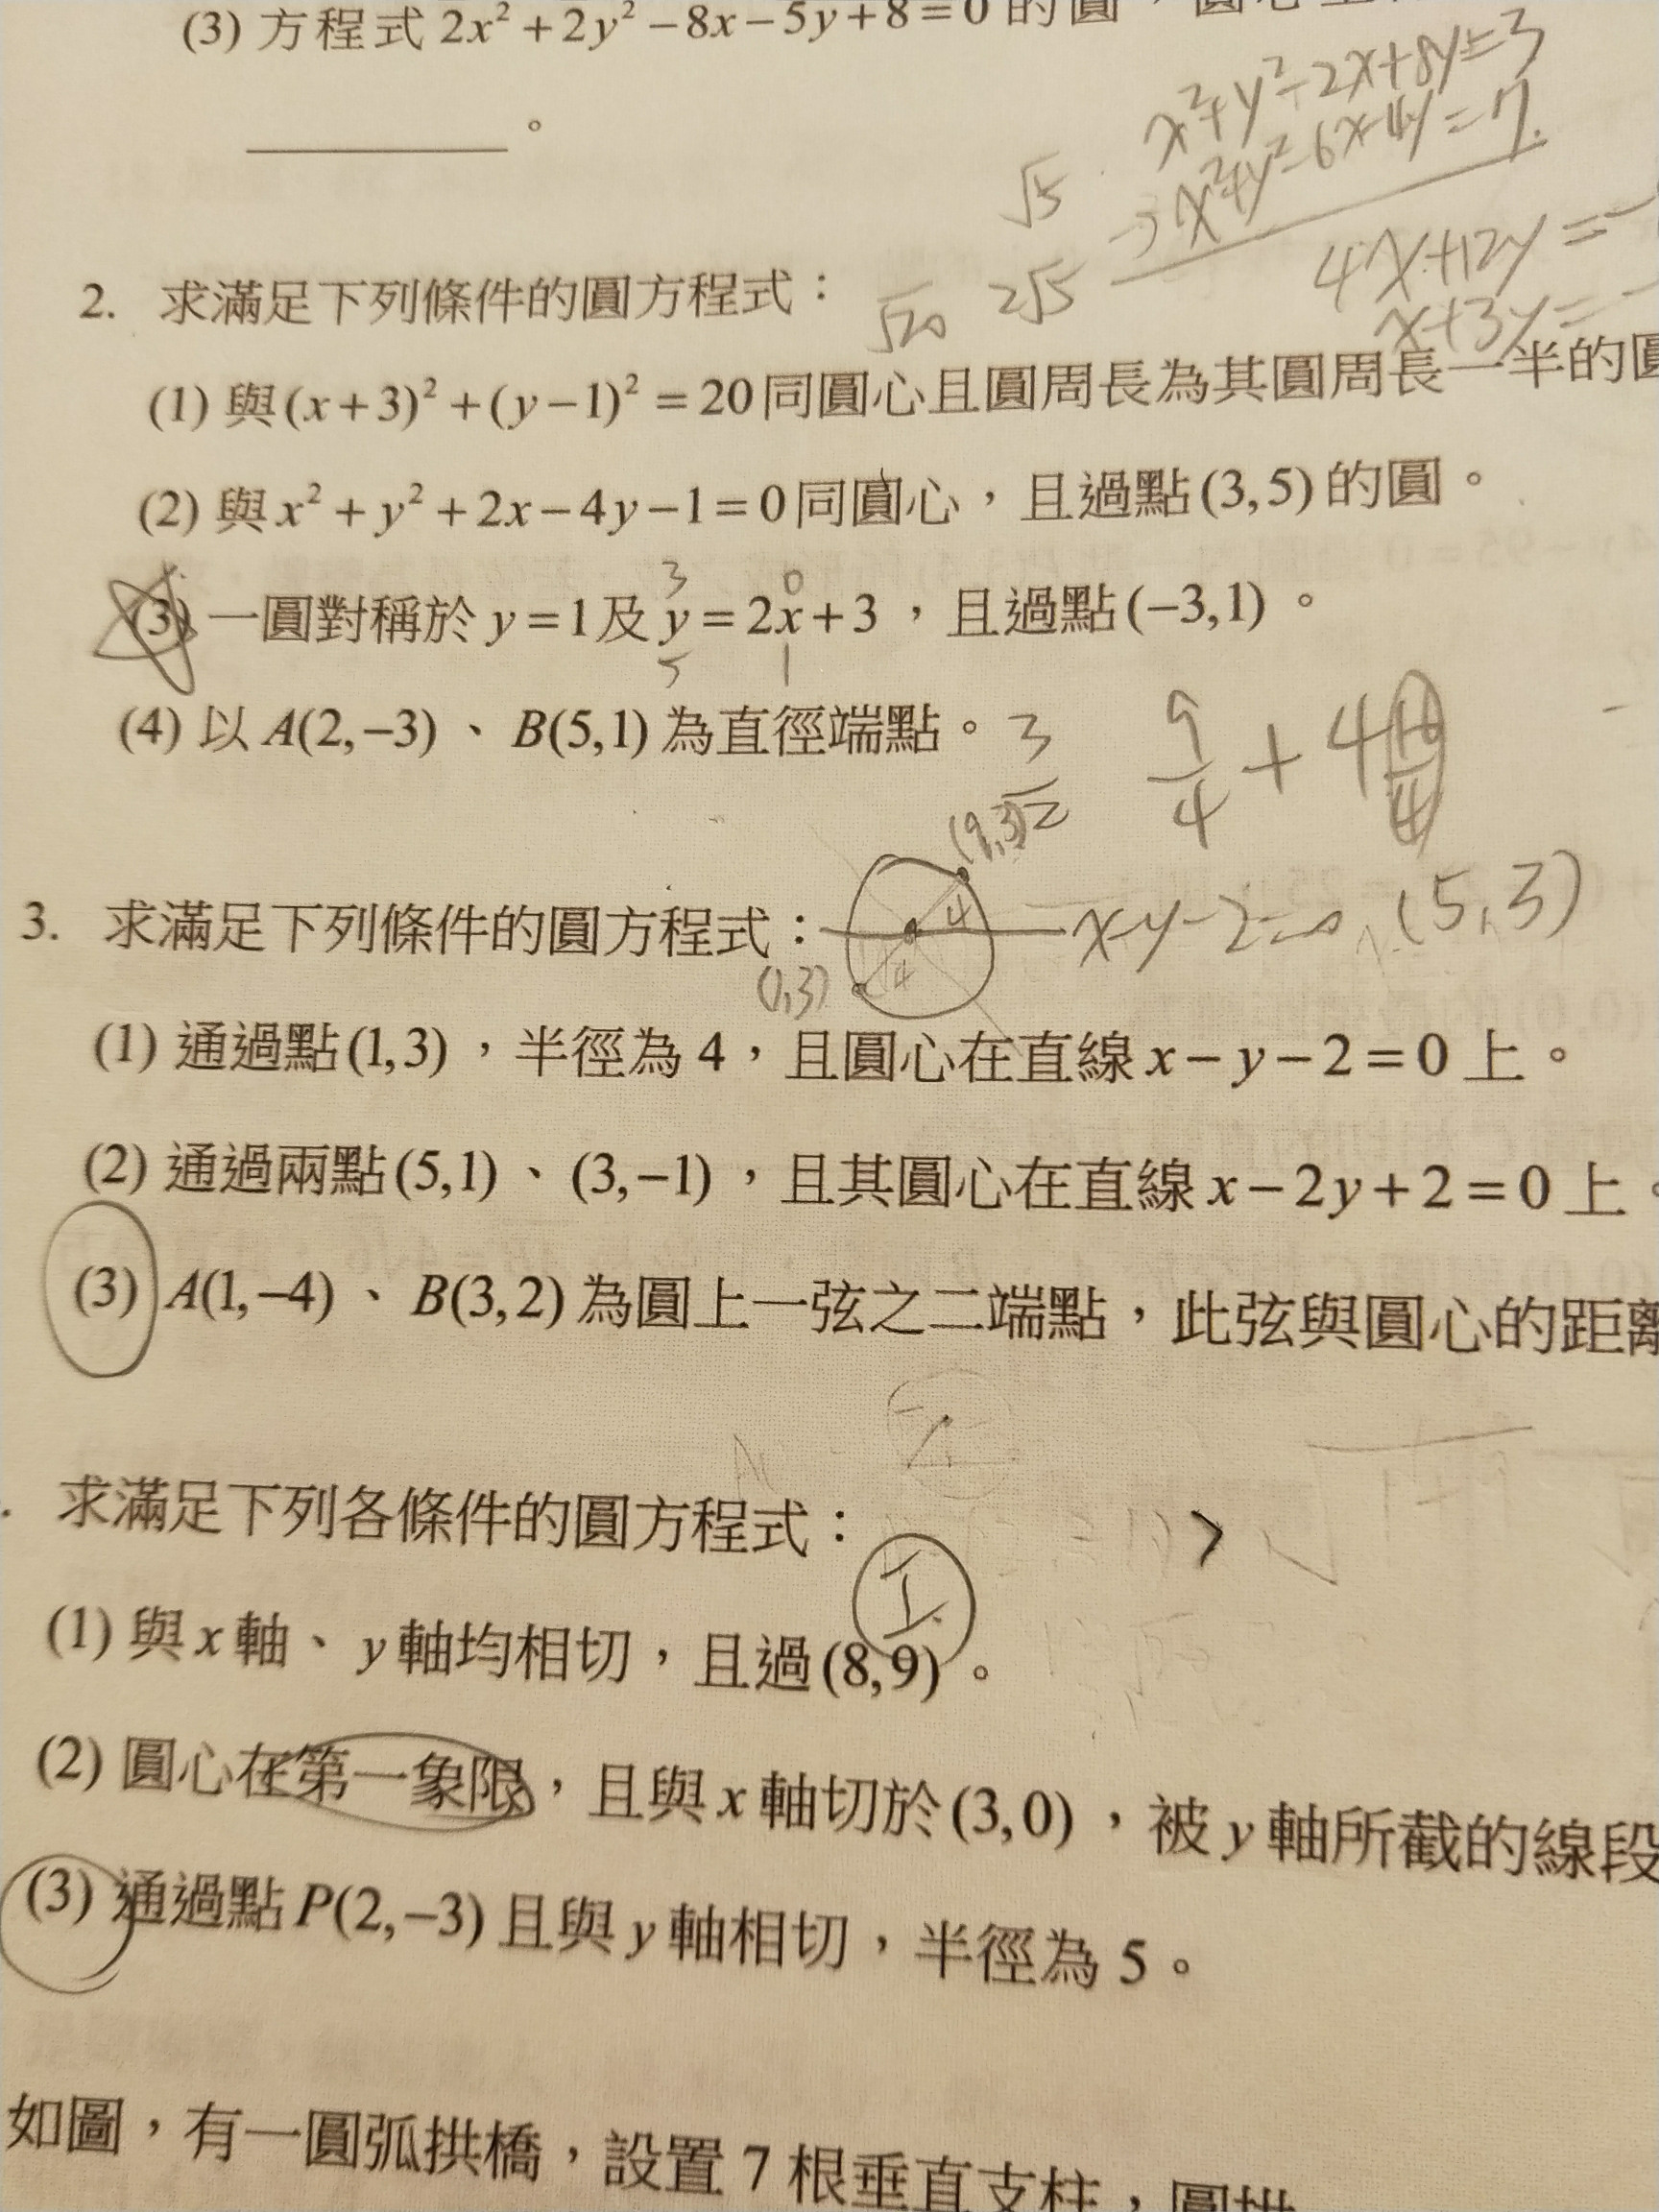 (3) 方程式 2x²+2y²−8x−5y+8=0 的圓，圓心
。
x²+y²-2x+8y=3
-) x²+y²-6x-4y=7
4x+12y=-
x+3y=-
√5
√20 2√5
2. 求滿足下列條件的圓方程式：
(1) 與(x+3)²+(y−1)²=20同圓心且圓周長為其圓周長一半的圓
(2) 與x²+y²+2x−4y−1=0同圓心，且過點(3,5)的圓。
3 0
(3) 一圓對稱於 y=1及 y=2x+3，且過點(−3,1)。
5 1
(4) 以 A(2,−3)、B(5,1)為直徑端點。
3
9/4 + 4
(9,3)
3. 求滿足下列條件的圓方程式：
4
x-y-2=0 (5,3)
(1,3) 4
(1) 通過點(1,3)，半徑為 4，且圓心在直線 x−y−2=0 上。
(2) 通過兩點(5,1)、(3,−1)，且其圓心在直線 x−2y+2=0 上。
(3) A(1,−4)、B(3,2)為圓上一弦之二端點，此弦與圓心的距離
. 求滿足下列各條件的圓方程式：
I
(1) 與 x 軸、y 軸均相切，且過(8,9)。
(2) 圓心在第一象限，且與 x 軸切於(3,0)，被 y 軸所截的線段
(3) 通過點 P(2,−3) 且與 y 軸相切，半徑為 5。
如圖，有一圓弧拱橋，設置 7 根垂直支柱，圓拱